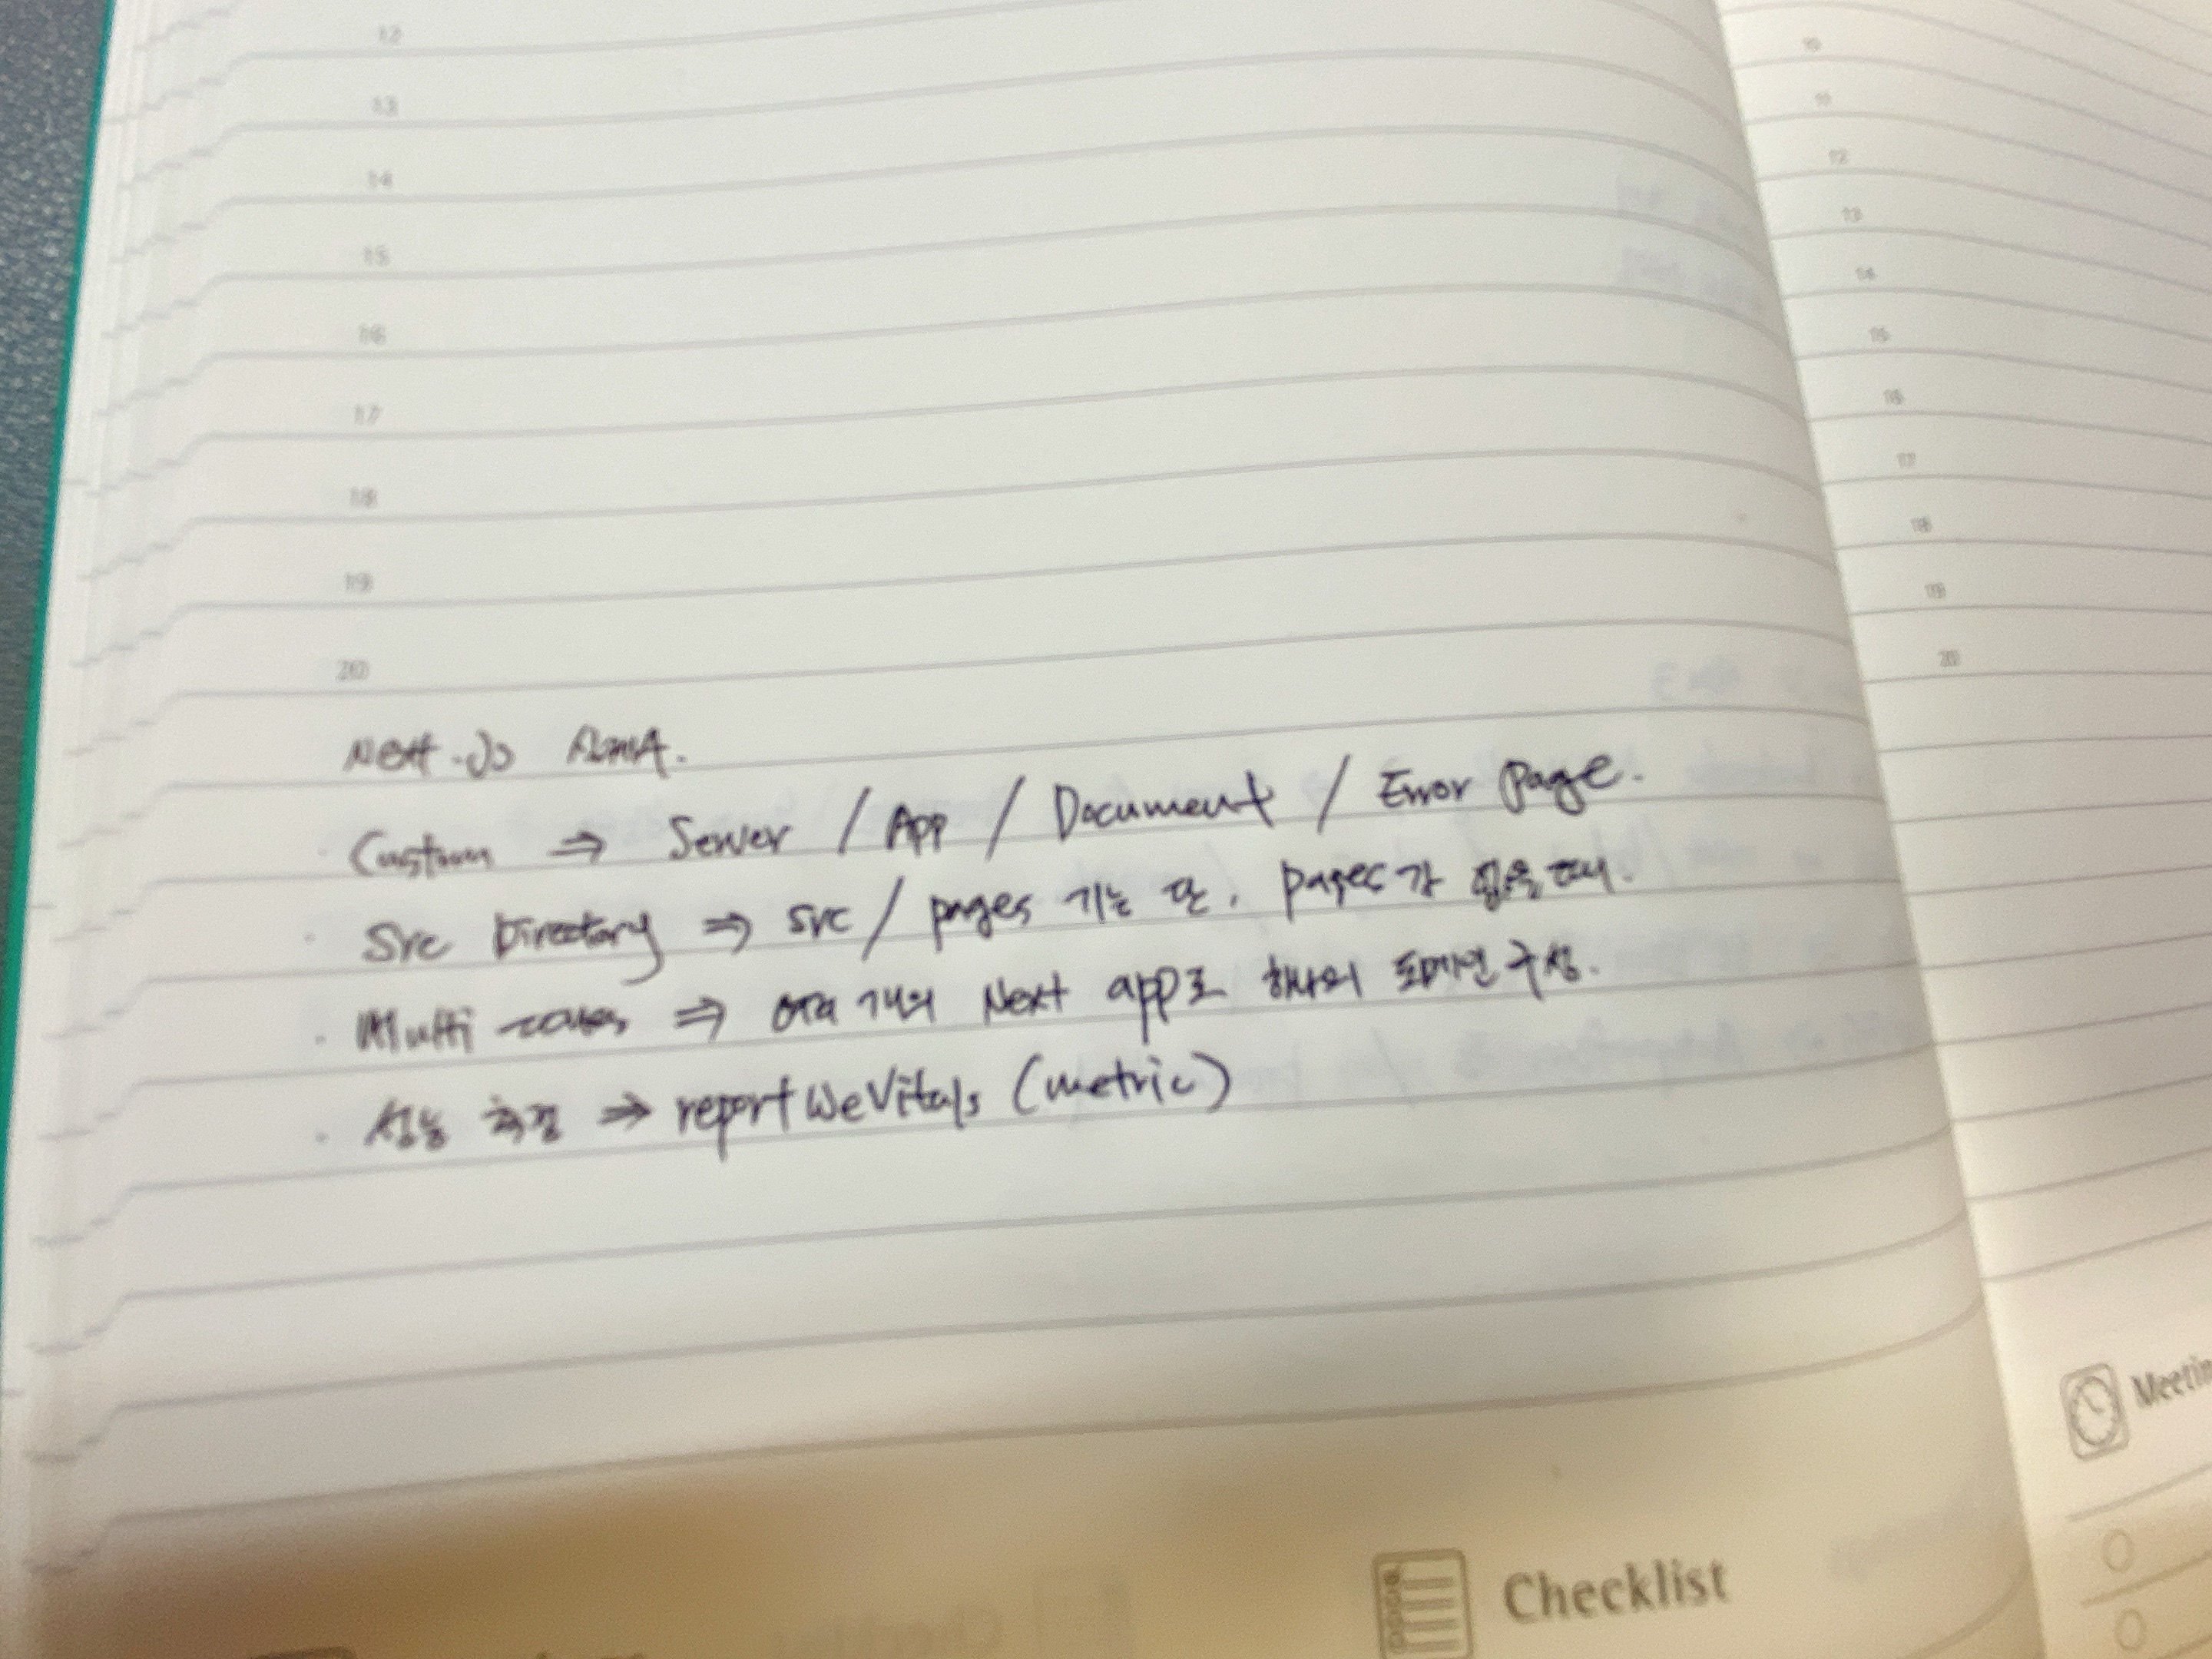 12
13
14
15
16
17
18
19
20
Next.js
Custom ⇒ Server / App / Document / Error Page.
· Src Directory ⇒ src / pages 가능 단, pages가 없을 때.
· Multi zones ⇒ 여러 개의 Next app로 하나의 도메인 구성.
· 성능 측정 ⇒ reportWeVitals (metric)
Checklist
10
11
12
13
14
15
16
17
18
19
20